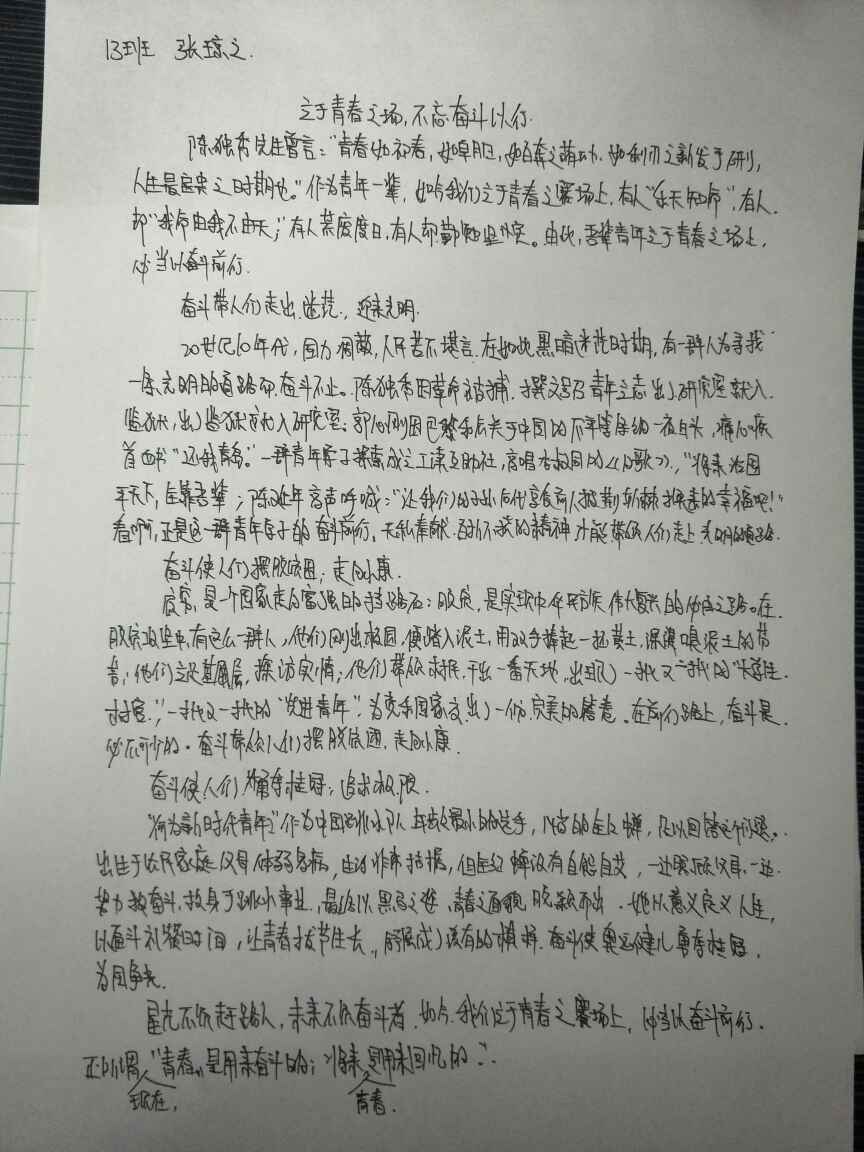 13班 张琼之.
立于青春之场,不忘奋斗以行.
陈独秀先生曾言:"青春如初春,如朝日,如百卉之萌动,如利刃之新发于硎,
人生最宝贵之时期也。"作为青年一辈,如今我们立于青春之赛场上,有人"乐天知命",有人
却"我命由我不由天";有人荒废度日,有人却勤勉坚实。由此,吾辈青年立于青春之场上,
必当以奋斗前行.
奋斗带人们走出迷茫,迎来光明.
20世纪10年代,国力凋敝,人民苦不堪言.在如此黑暗迷茫时期,有一群人为寻找
一条光明的道路而奋斗不止。陈独秀因革命被捕,撰文号召青年立志出了研究室就入
监狱,出了监狱就入研究室;郭心刚因巴黎和会关于中国的不平等条约一夜白头,痛心疾
首血书"还我青岛。"一群青年学子探索成立工读互助社,高唱李叔同的《》,"将来治国
平天下,全靠吾辈;陈延年高声呼喊:"让我们的子孙后代享受前人披荆斩棘换来的幸福吧!"
看啊,正是这一群青年学子的奋斗前行,无私奉献.百折不挠的精神才能带领人们走上光明的道路.
奋斗使人们摆脱贫困;走向小康.
贫穷,是一个国家走向富强的挡路石;脱贫,是实现中华民族伟大复兴的必由之路。在
脱贫攻坚中,有这么一群人,他们刚出校园,便踏入泥土,用双手捧起一抔黄土,深深嗅泥土的芬
芳;他们立足基层,探访实情;他们带领农民,干出一番天地.出现了一代又一代的"大学生
村官",一代又一代的"先进青年".为变革国家交出了一份完美的答卷.在前行路上,奋斗是
必不可少的.奋斗带领人们摆脱贫困,走向小康.
奋斗使人们勇夺桂冠;追求极限.
"何为新时代青年?"作为中国跳水队年龄最小的选手,14岁的全红婵,足以回答这个问题.
出生于农民家庭,父母体弱多病,生活非常拮据,但全红婵没有自怨自艾,一边照顾父母,一边
努力拼奋斗,投身于跳水事业,最终以黑马之姿,青春之面貌脱颖而出.她以意义定义人生,
以奋斗礼赞时间,让青春拔节生长,舒展成了该有的模样.奋斗使奥运健儿勇夺桂冠,
为国争光.
星光不负赶路人,未来不负奋斗者.如今,我们立于青春之赛场上,必当以奋斗前行.
正所谓"现在,青春是用来奋斗的;将来,青春是用来回忆的."